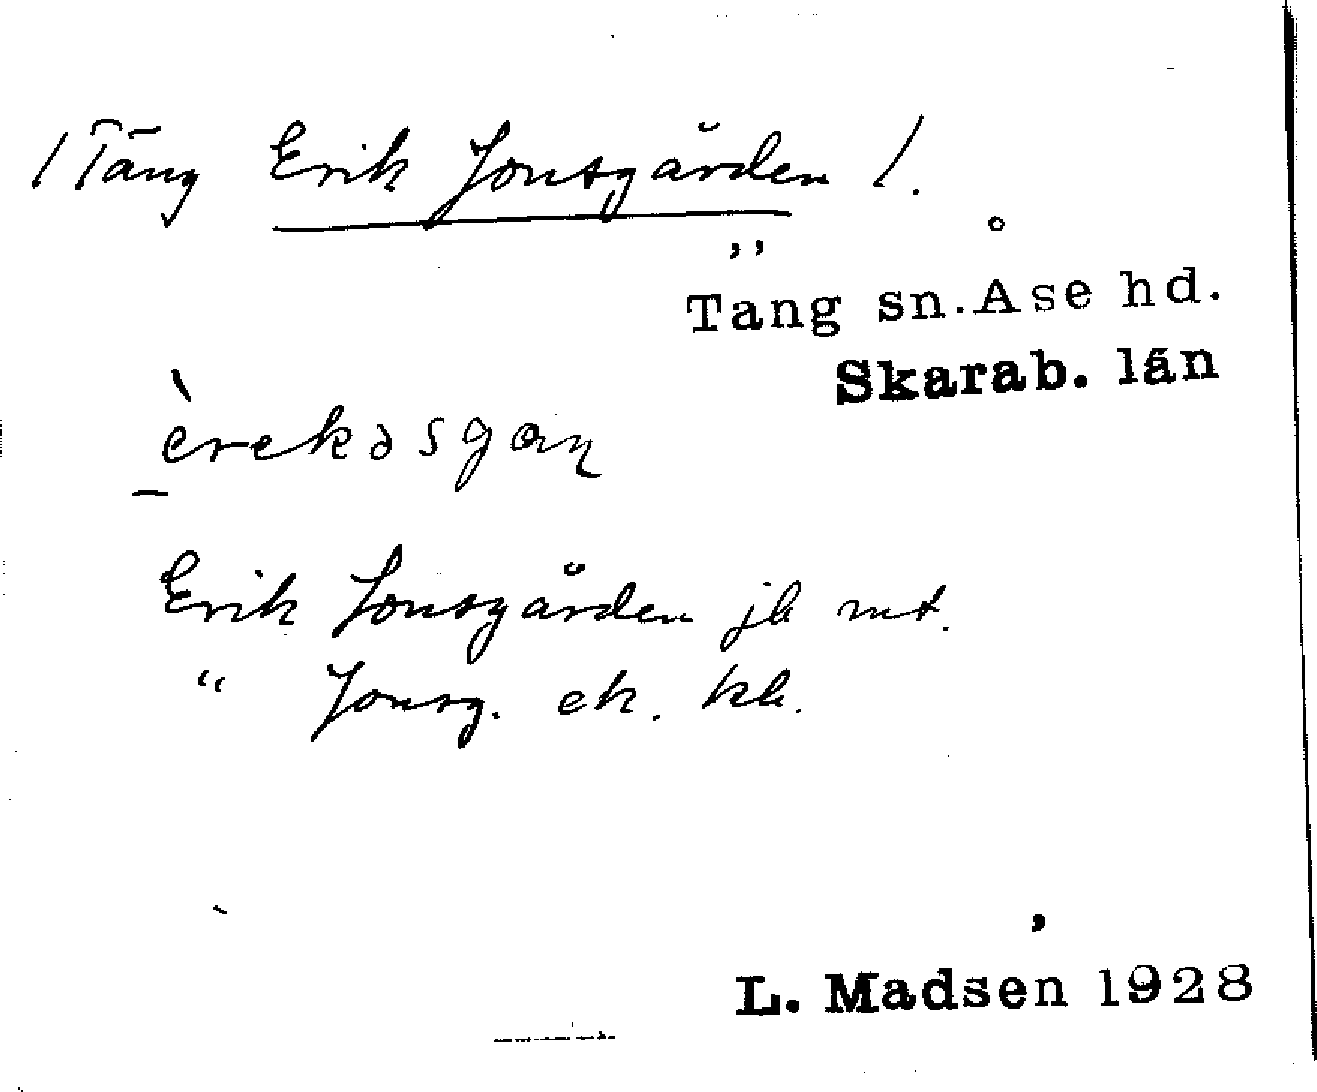 /Täng Erik Jonsgården /.
Täng sn. Åse hd.
Skarab. län
èrekəsgaɳ
Erik Jonsgården jb mt.
" Jonsg. ek. kk.
L. Madsén 1928